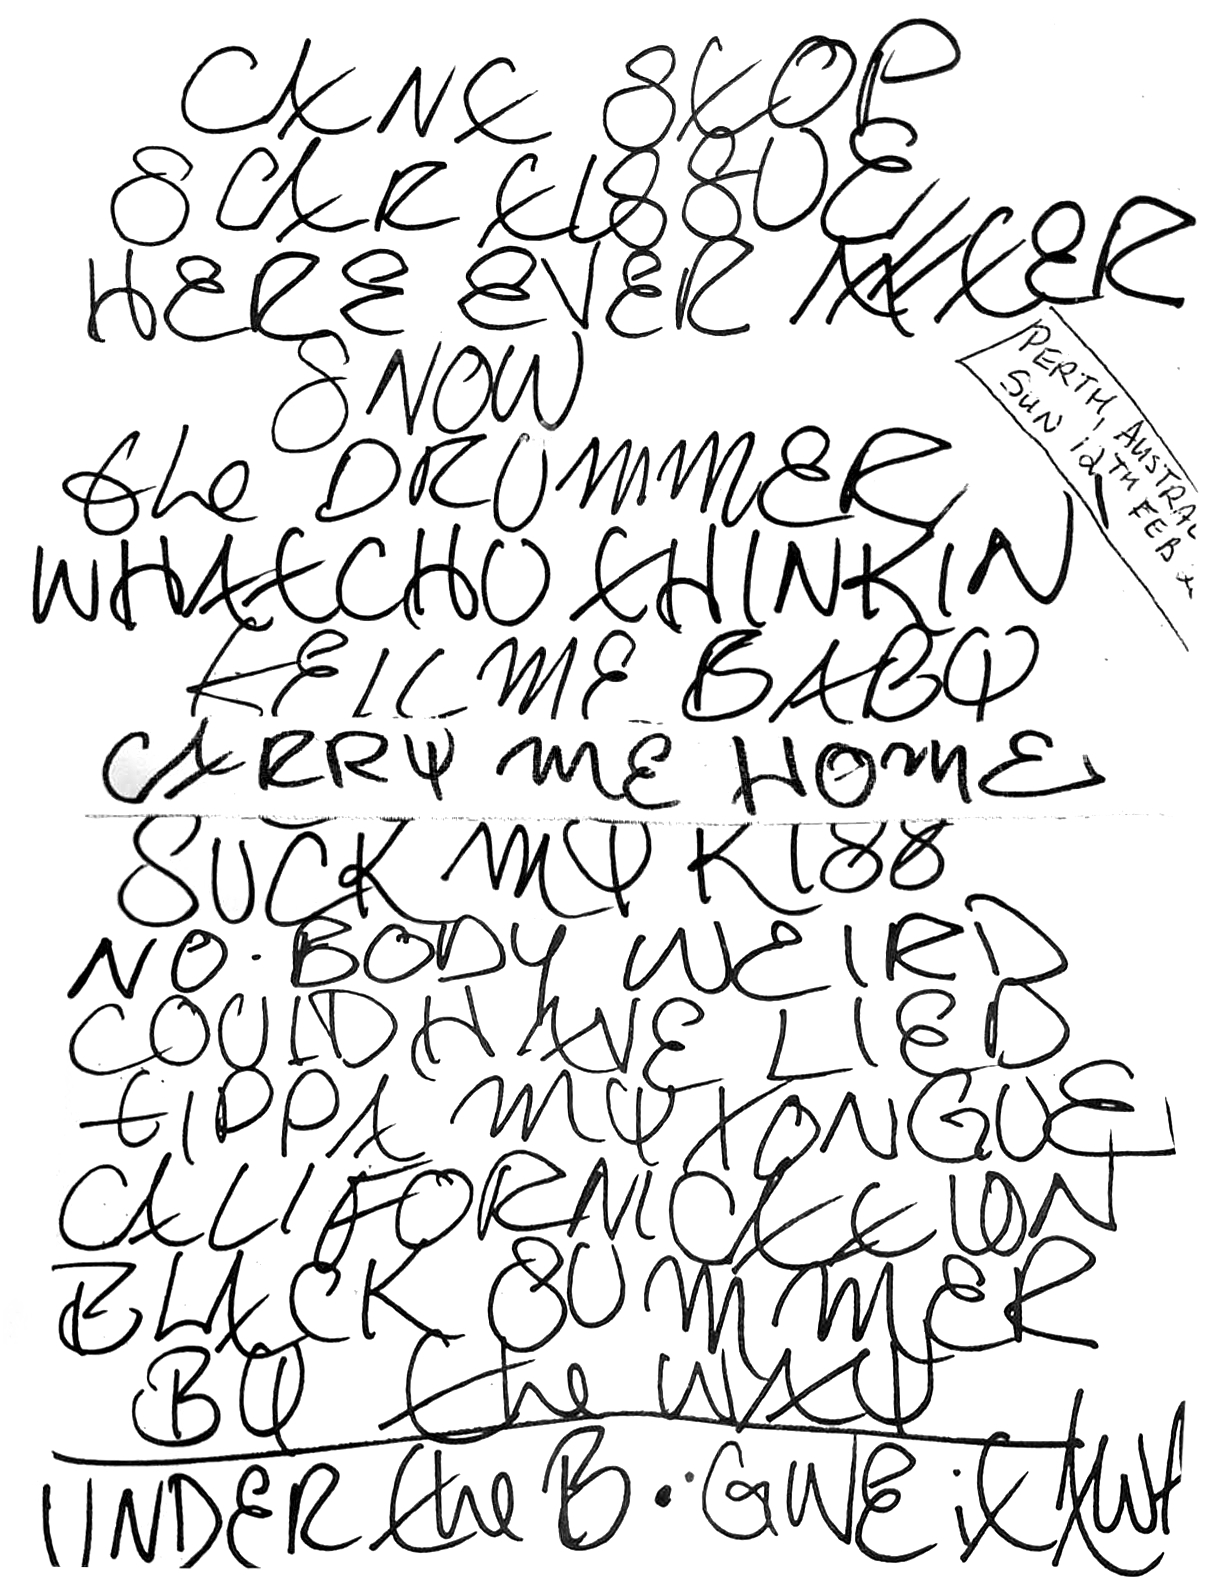 CAN'T STOP
SCAR TISSUE
HERE EVER AFTER
SNOW
the DRUMMER
WHATCHU THINKIN
TELL ME BABY
CARRY ME HOME
SUCK MY KISS
NO. BODY WEIRD
COULD HAVE LIED
TIPPA MY TONGUE
CALIFORNICATION
BLACK SUMMER
BY the WAY
UNDER the B • GIVE it AWA
PERTH, AUSTRAL
SUN 12TH FEB